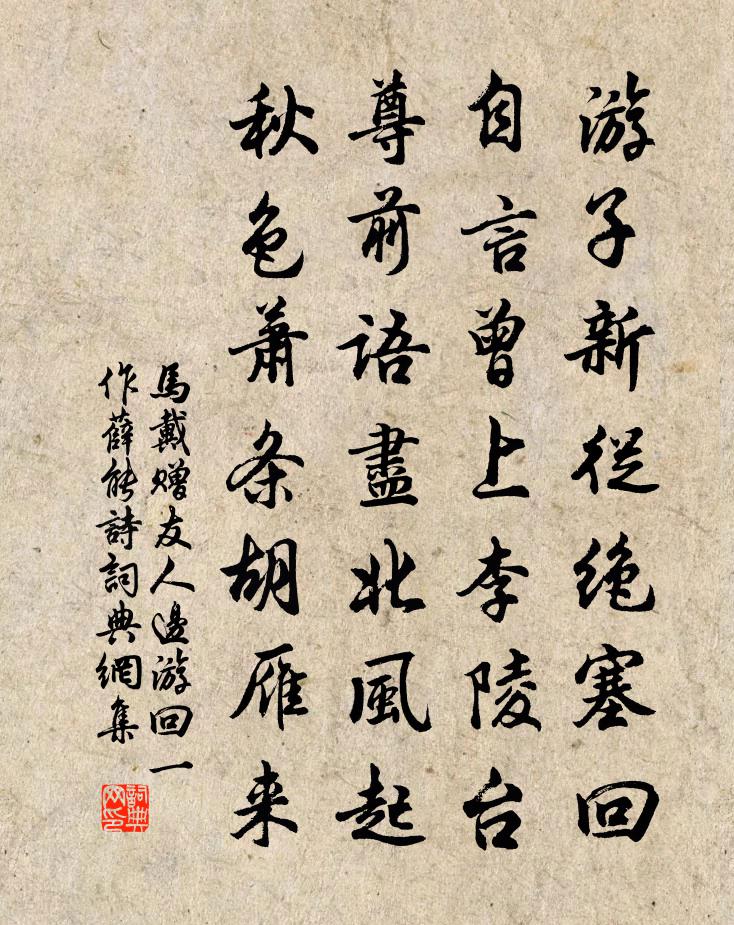 游子新從绝塞回
自言曾上李陵台
尊前語盡北風起
秋色萧条胡雁来
馬戴赠友人邊游回一
作薛能詩詞典網集
詞典
网印